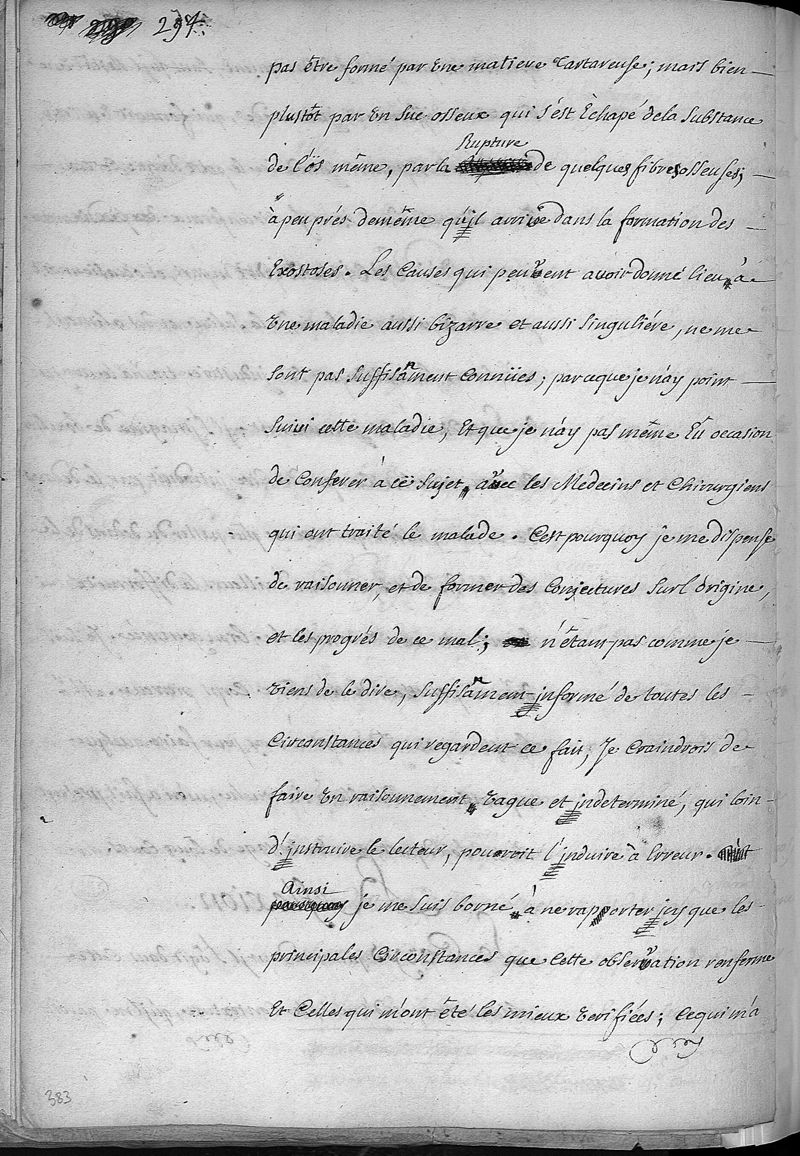 297.
pas être formé par une matiere Tartareuse; mais bien
plustôt par un suc osseux qui s'est Échapé dela substance
Rupture
de l'ôs même, par la de quelques fibres osseuses;
à peu prés demême qu'il arrive dans la formation des
Exostoses. Les Causes qui peuvent avoir donné lieu, à
une maladie aussi bizarre et aussi singuliére, ne me
sont pas suffisament connües; parceque je n'ay point
suivi cette maladie, Et que je n'ay pas même Eû occasion
de Conferer à cë sujet, avec les Medecins et Chirurgiens
qui ont traité le malade. C'est pourquoy je me dispense
de raisonner, et de former des Conjectures sur l'origine,
et les progrés de ce mal; n'étant pas comme je
viens de le dire, suffisament informé de toutes les
Circonstances qui regardent ce fait, Je Craindrois de
faire un raisonnement, vague et indeterminé, qui loin
d'instruire le lecteur, pouvroit l'induire à Erreur.
Ainsi
je me suis borné, à ne rapporter icy que les
principales Circonstances que cette observation renferme
Et Celles qui m'ont été les mieux verifiées; Ce qui m'a
383